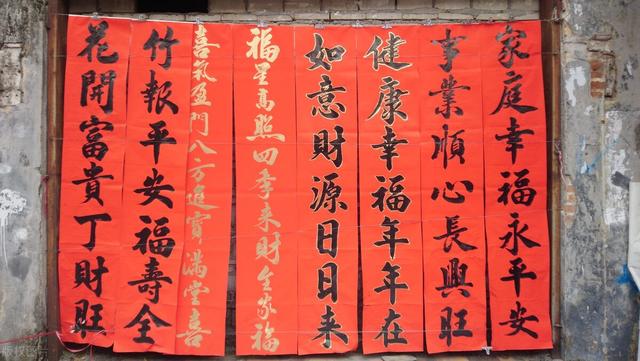 家庭幸福永平安
事業順心長興旺
健康幸福年年在
如意財源日日来
福星高照四季来財全家福
喜氣盈門八方進寶滿堂喜
竹報平安福壽全
花開富貴丁財旺